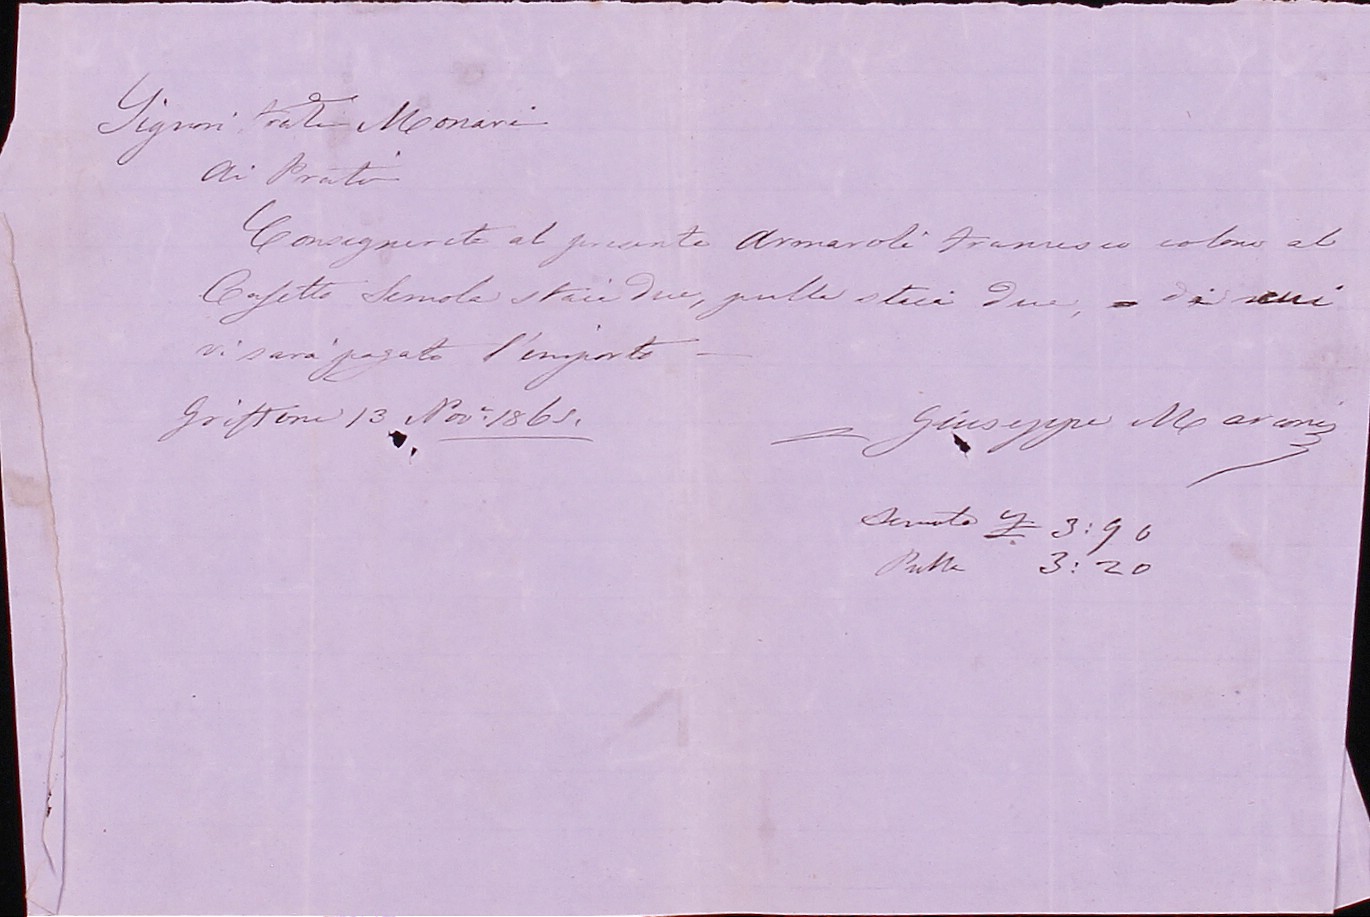 Signori frati Monari
Ai Prati
Consegnerete al presente Armaroli Francesco colono al
Casetto Semola staia due, pulla staia due, = di cui
vi sarà pagato l'importo —
Griffone 13 Nov: 1865.
Giuseppe Marconi
Semola £ 3:90
Pulla 3:20